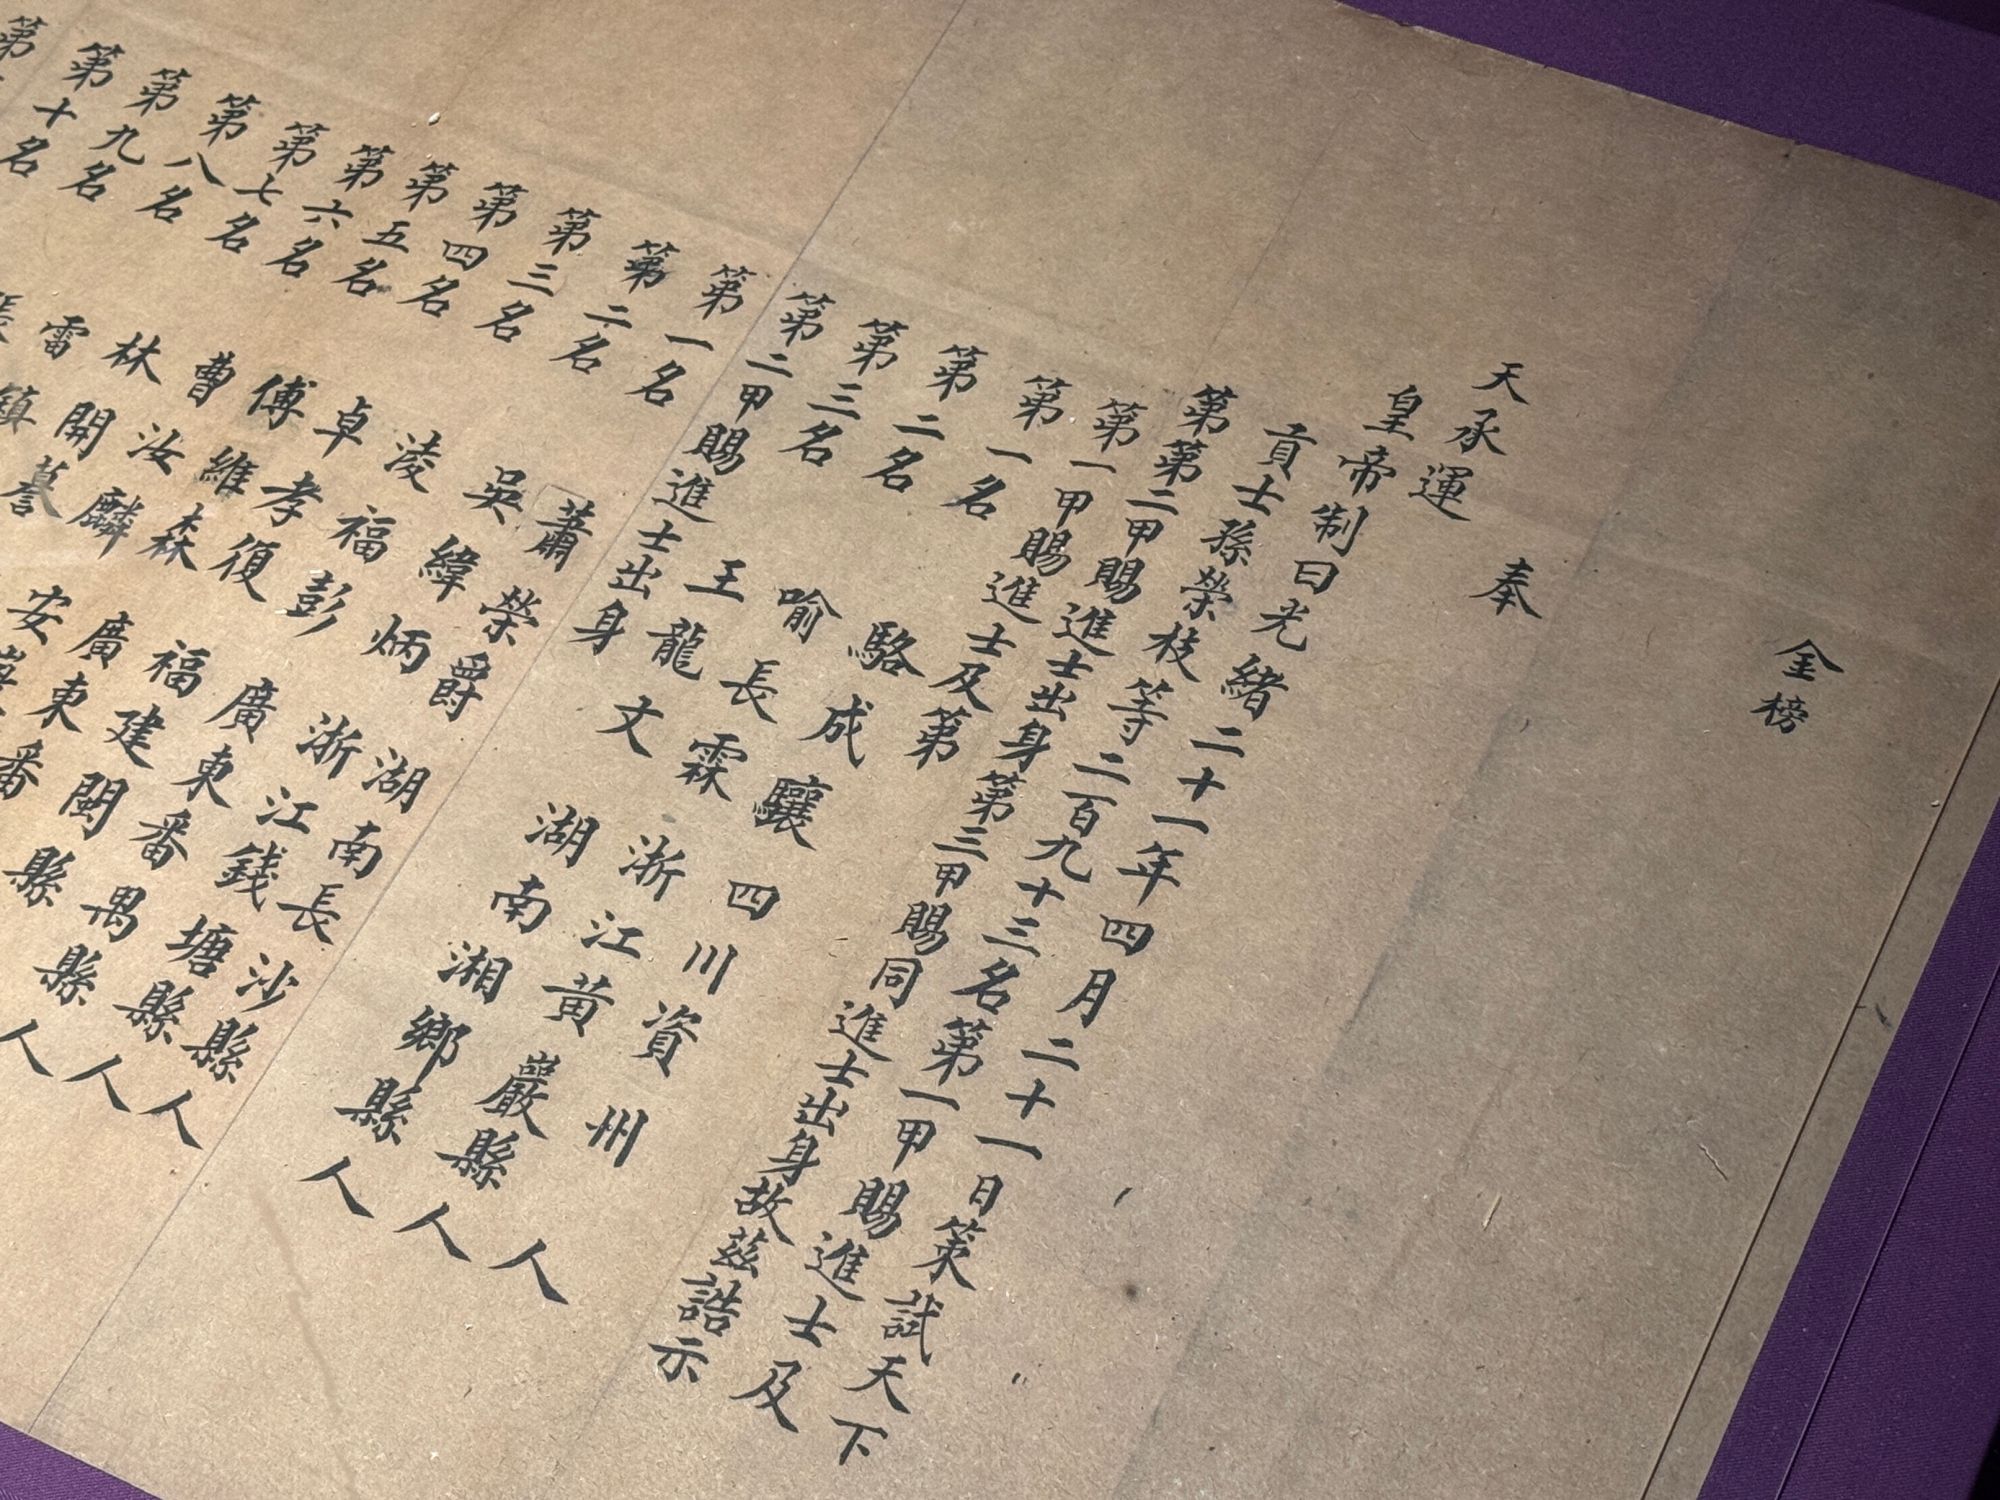 金榜
奉
天承運
皇帝制曰光緒二十一年四月二十一日策試天下
貢士孫榮枝等二百九十三名第一甲賜進士及
第第二甲賜進士出身第三甲賜同進士出身故茲誥示
第一甲賜進士及第
第一名 駱成驤 四川資州人
第二名 喻長霖 浙江黃巖縣人
第三名 王龍文 湖南湘鄉縣人
第二甲賜進士出身
第一名 蕭榮爵 湖南長沙縣人
第二名 吳緯炳 浙江錢塘縣人
第三名 淩福彭 廣東番禺縣人
第四名 卓孝復 福建閩縣
第五名 傅維森 廣東番
第六名 曹汝麟 安
第七名 林開謩
第八名 雷鎮
第九名
第十名
第